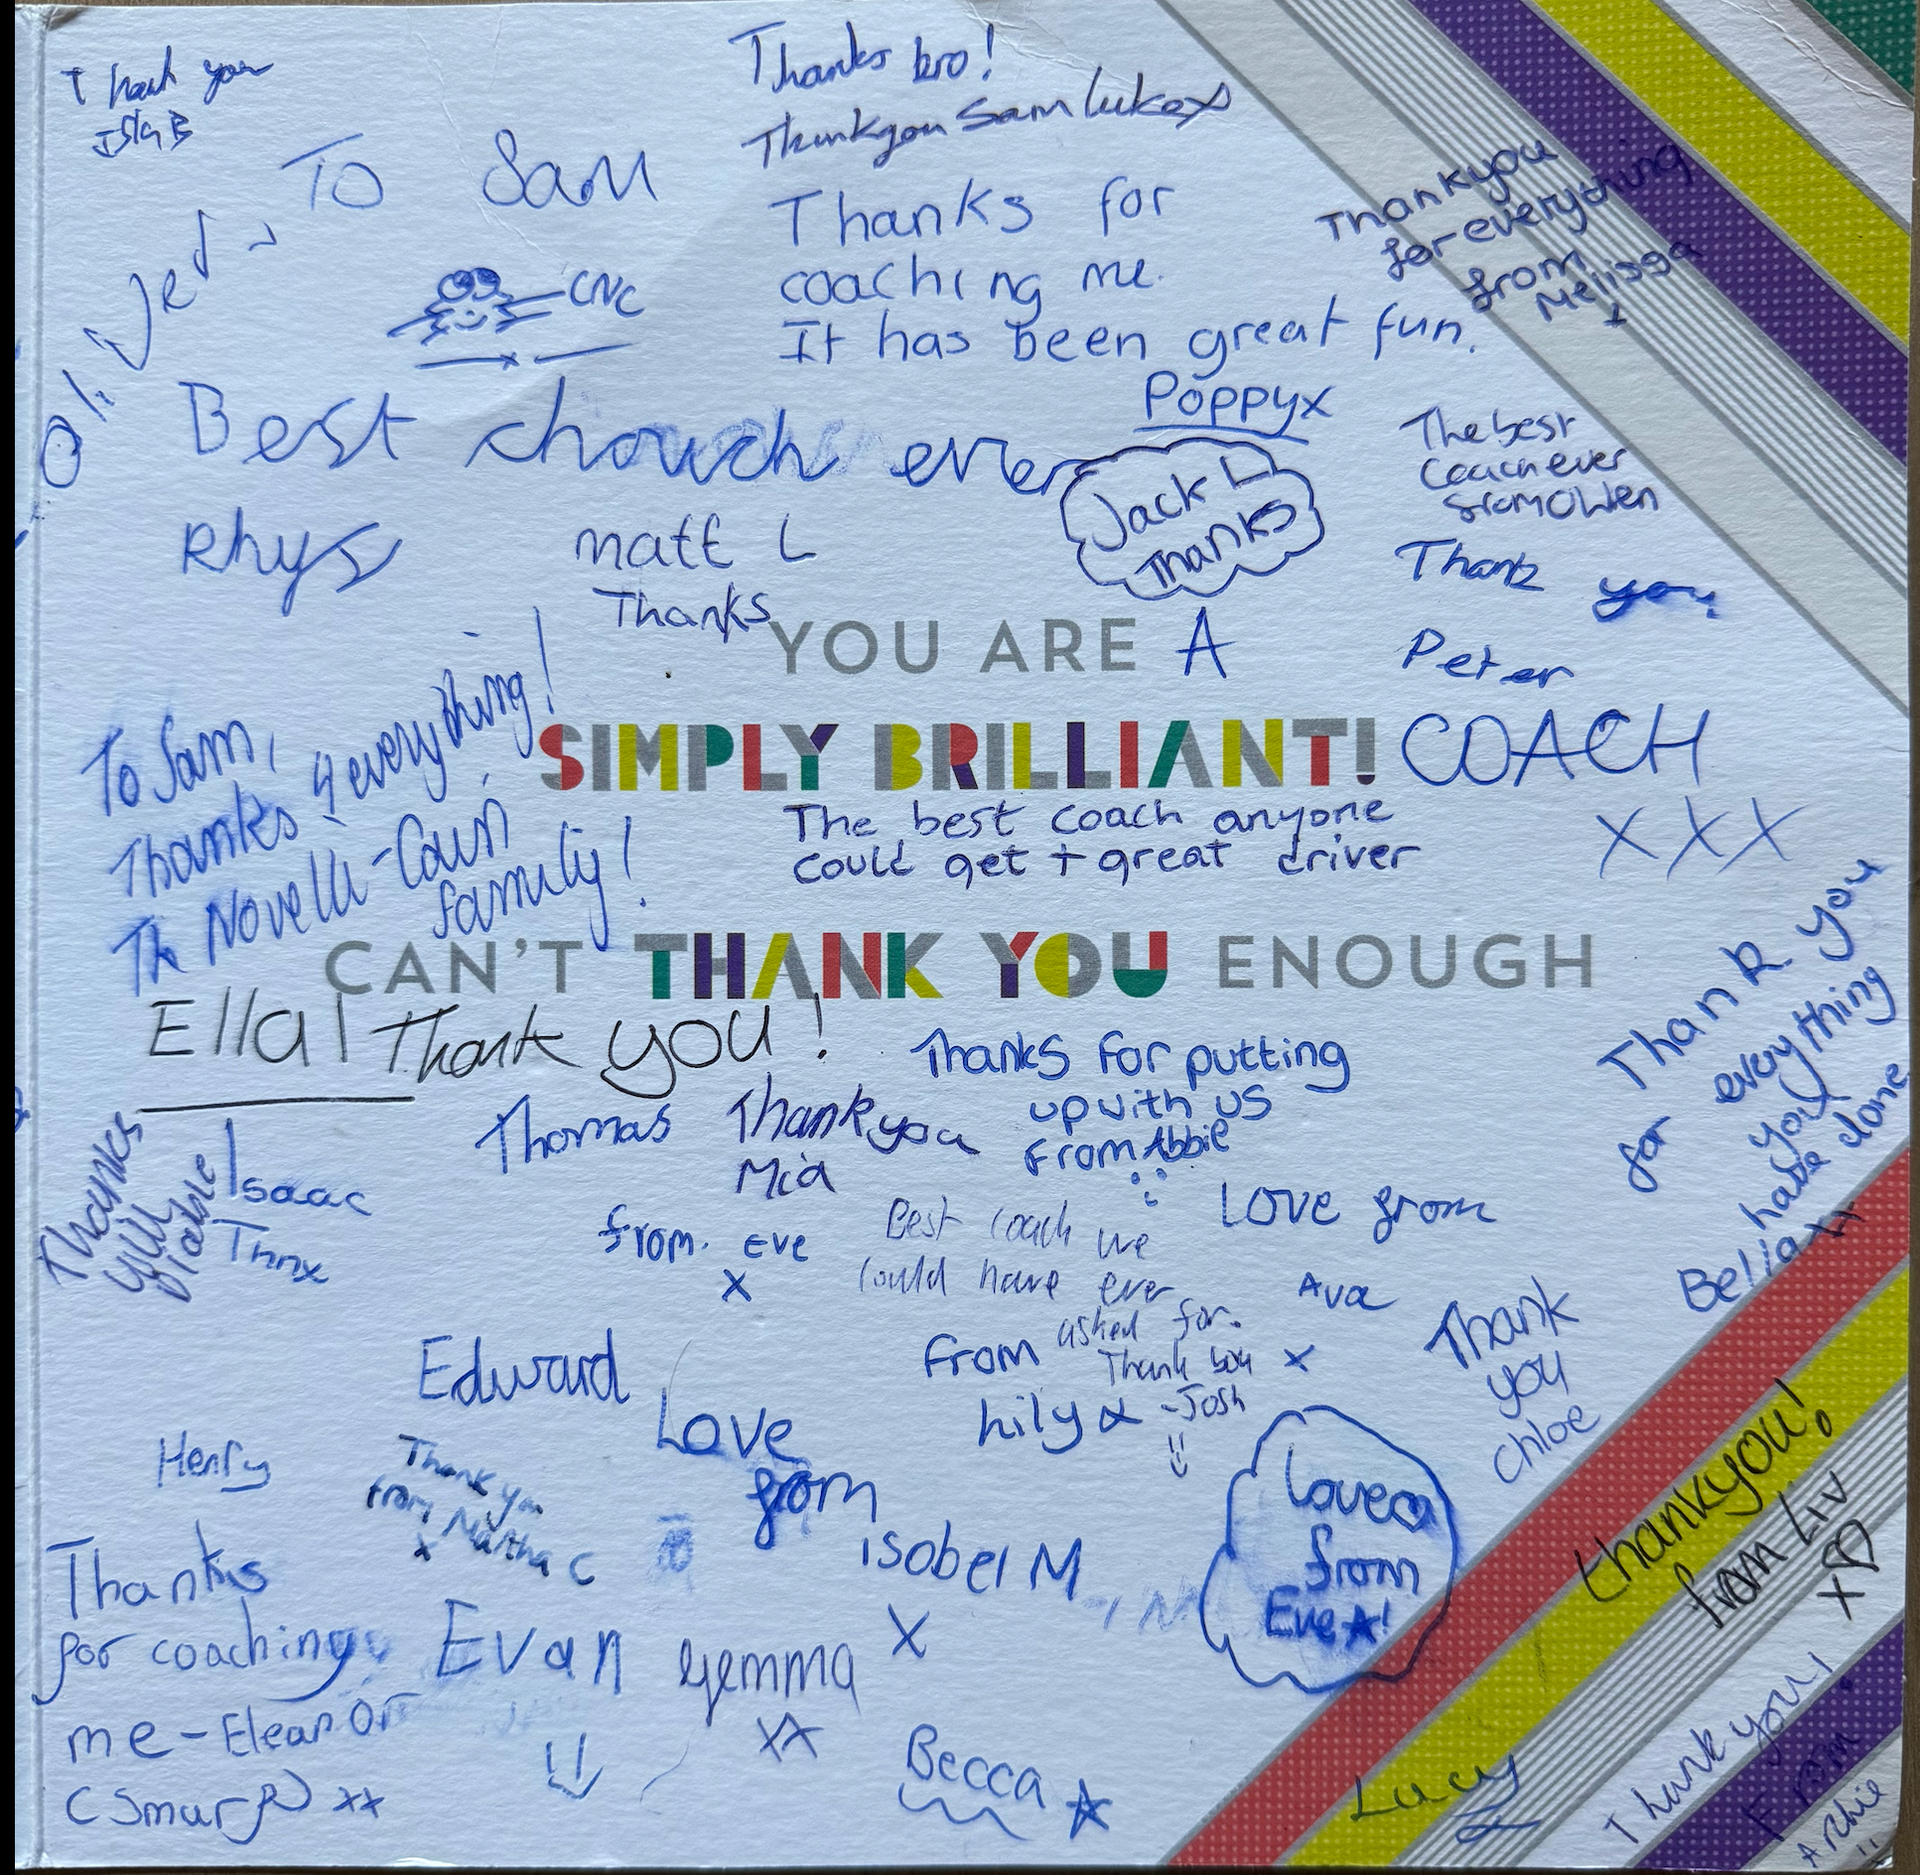 Thank you
Isla B
To Sam
Thanks bro!
Thankyou Sam Luke x
Thanks for
coaching me.
It has been great fun.
Poppyx
Thankyou
for everything
from
Melissa
x
Oli Jed
CNC
Best chouch ever
Rhys
matt L
Thanks
Jack L
Thanks
The best
Coach ever
from Owen
Thank you
Peter
YOU ARE A
SIMPLY BRILLIANT! COACH
xxx
The best coach anyone
could get + great driver
To Sam,
Thanks 4 everything!
The Novelli-Cain
family!
CAN'T THANK YOU ENOUGH
Ella! Thank you!
Thanks for putting
up with us
From Abbie
Thank you
for everything
you
have done
Bella xx
Thanks
Will
Isaac
Thnx
Thomas
Thankyou
Mia
from. Eve
x
Best coach we
could have ever
asked for.
Thank you
-Josh
Love from
Ava
x
From
Lily x
Thank
you
Chloe
Edward
Love
from
isobel M
x
Henry
Thank you
from Martha C
x
Love
from
Eve A!
thankyou!
from Liv
xD
Thanks
for coaching
me - Eleanor
(Smurf) xx
Evan
Gemma
xx
Becca
Lucy
Thank you!
From
Archie